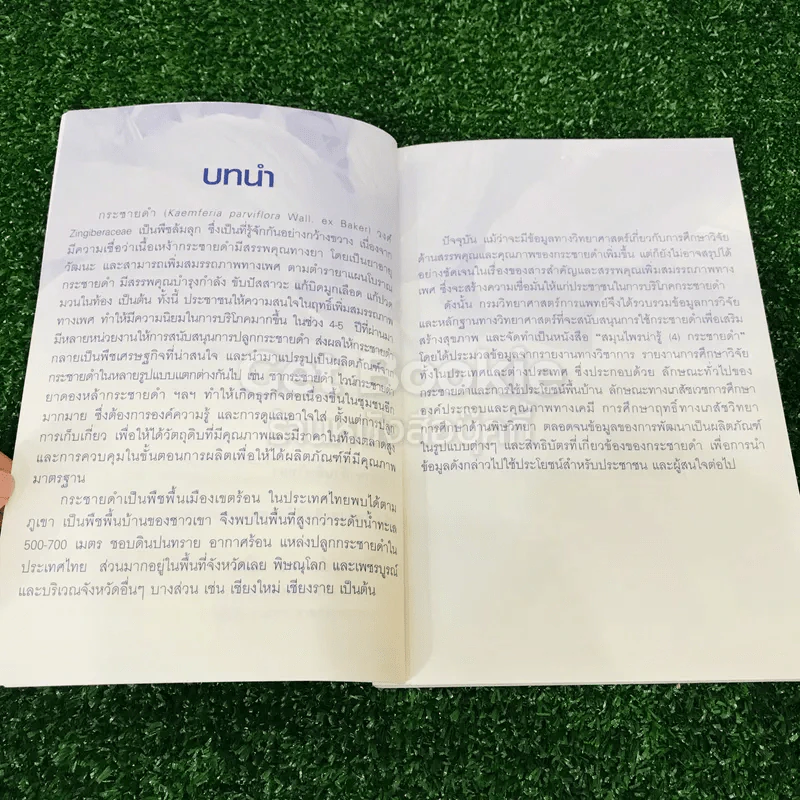 บทนำ
กระชายดำ (Kaemferia parviflora Wall. ex Baker) วงศ์
Zingiberaceae เป็นพืชล้มลุก ซึ่งเป็นที่รู้จักกันอย่างกว้างขวาง เนื่องจาก
มีความเชื่อว่าเนื้อเหง้ากระชายดำมีสรรพคุณทางยา โดยเป็นยาอายุ
วัฒนะ และสามารถเพิ่มสมรรถภาพทางเพศ ตามตำรายาแผนโบราณ
กระชายดำ มีสรรพคุณบำรุงกำลัง ขับปัสสาวะ แก้บิดมูกเลือด แก้ปวด
มวนในท้อง เป็นต้น ทั้งนี้ ประชาชนให้ความสนใจในฤทธิ์เพิ่มสมรรถภาพ
ทางเพศ ทำให้มีความนิยมในการบริโภคมากขึ้น ในช่วง 4-5 ปีที่ผ่านมา
มีหลายหน่วยงานให้การสนับสนุนการปลูกกระชายดำ ส่งผลให้กระชายดำ
กลายเป็นพืชเศรษฐกิจที่น่าสนใจ และนำมาแปรรูปเป็นผลิตภัณฑ์จาก
กระชายดำในหลายรูปแบบแตกต่างกันไป เช่น ชากระชายดำ ไวน์กระชายดำ
ยาดองเหล้ากระชายดำ ฯลฯ ทำให้เกิดธุรกิจต่อเนื่องขึ้นในชุมชนอีก
มากมาย ซึ่งต้องการองค์ความรู้ และการดูแลเอาใจใส่ ตั้งแต่การปลูก
การเก็บเกี่ยว เพื่อให้ได้วัตถุดิบที่มีคุณภาพและมีราคาในท้องตลาดสูง
และการควบคุมในขั้นตอนการผลิตเพื่อให้ได้ผลิตภัณฑ์ที่มีคุณภาพ
มาตรฐาน
กระชายดำเป็นพืชพื้นเมืองเขตร้อน ในประเทศไทยพบได้ตาม
ภูเขา เป็นพืชพื้นบ้านของชาวเขา จึงพบในพื้นที่สูงกว่าระดับน้ำทะเล
500-700 เมตร ชอบดินปนทราย อากาศร้อน แหล่งปลูกกระชายดำใน
ประเทศไทย ส่วนมากอยู่ในพื้นที่จังหวัดเลย พิษณุโลก และเพชรบูรณ์
และบริเวณจังหวัดอื่นๆ บางส่วน เช่น เชียงใหม่ เชียงราย เป็นต้น
ปัจจุบัน แม้ว่าจะมีข้อมูลทางวิทยาศาสตร์เกี่ยวกับการศึกษาวิจัย
ด้านสรรพคุณและคุณภาพของกระชายดำเพิ่มขึ้น แต่ก็ยังไม่อาจสรุปได้
อย่างชัดเจนในเรื่องของสารสำคัญและสรรพคุณเพิ่มสมรรถภาพทาง
เพศ ซึ่งจะสร้างความเชื่อมั่นให้แก่ประชาชนในการบริโภคกระชายดำ
ดังนั้น กรมวิทยาศาสตร์การแพทย์จึงได้รวบรวมข้อมูลการวิจัย
และหลักฐานทางวิทยาศาสตร์ที่จะสนับสนุนการใช้กระชายดำเพื่อเสริม
สร้างสุขภาพ และจัดทำเป็นหนังสือ "สมุนไพรน่ารู้ (4) กระชายดำ"
โดยได้ประมวลข้อมูลจากรายงานทางวิชาการ รายงานการศึกษาวิจัย
ทั้งในประเทศและต่างประเทศ ซึ่งประกอบด้วย ลักษณะทั่วไปของ
กระชายดำและการใช้ประโยชน์พื้นบ้าน ลักษณะทางเภสัชเวชการศึกษา
องค์ประกอบและคุณภาพทางเคมี การศึกษาฤทธิ์ทางเภสัชวิทยา
การศึกษาด้านพิษวิทยา ตลอดจนข้อมูลของการพัฒนาเป็นผลิตภัณฑ์
ในรูปแบบต่างๆ และสิทธิบัตรที่เกี่ยวข้องของกระชายดำ เพื่อการนำ
ข้อมูลดังกล่าวไปใช้ประโยชน์สำหรับประชาชน และผู้สนใจต่อไป